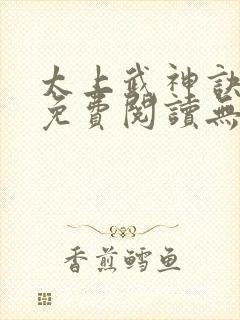 太上武神訣
免費閱讀無
香煎鳕鱼